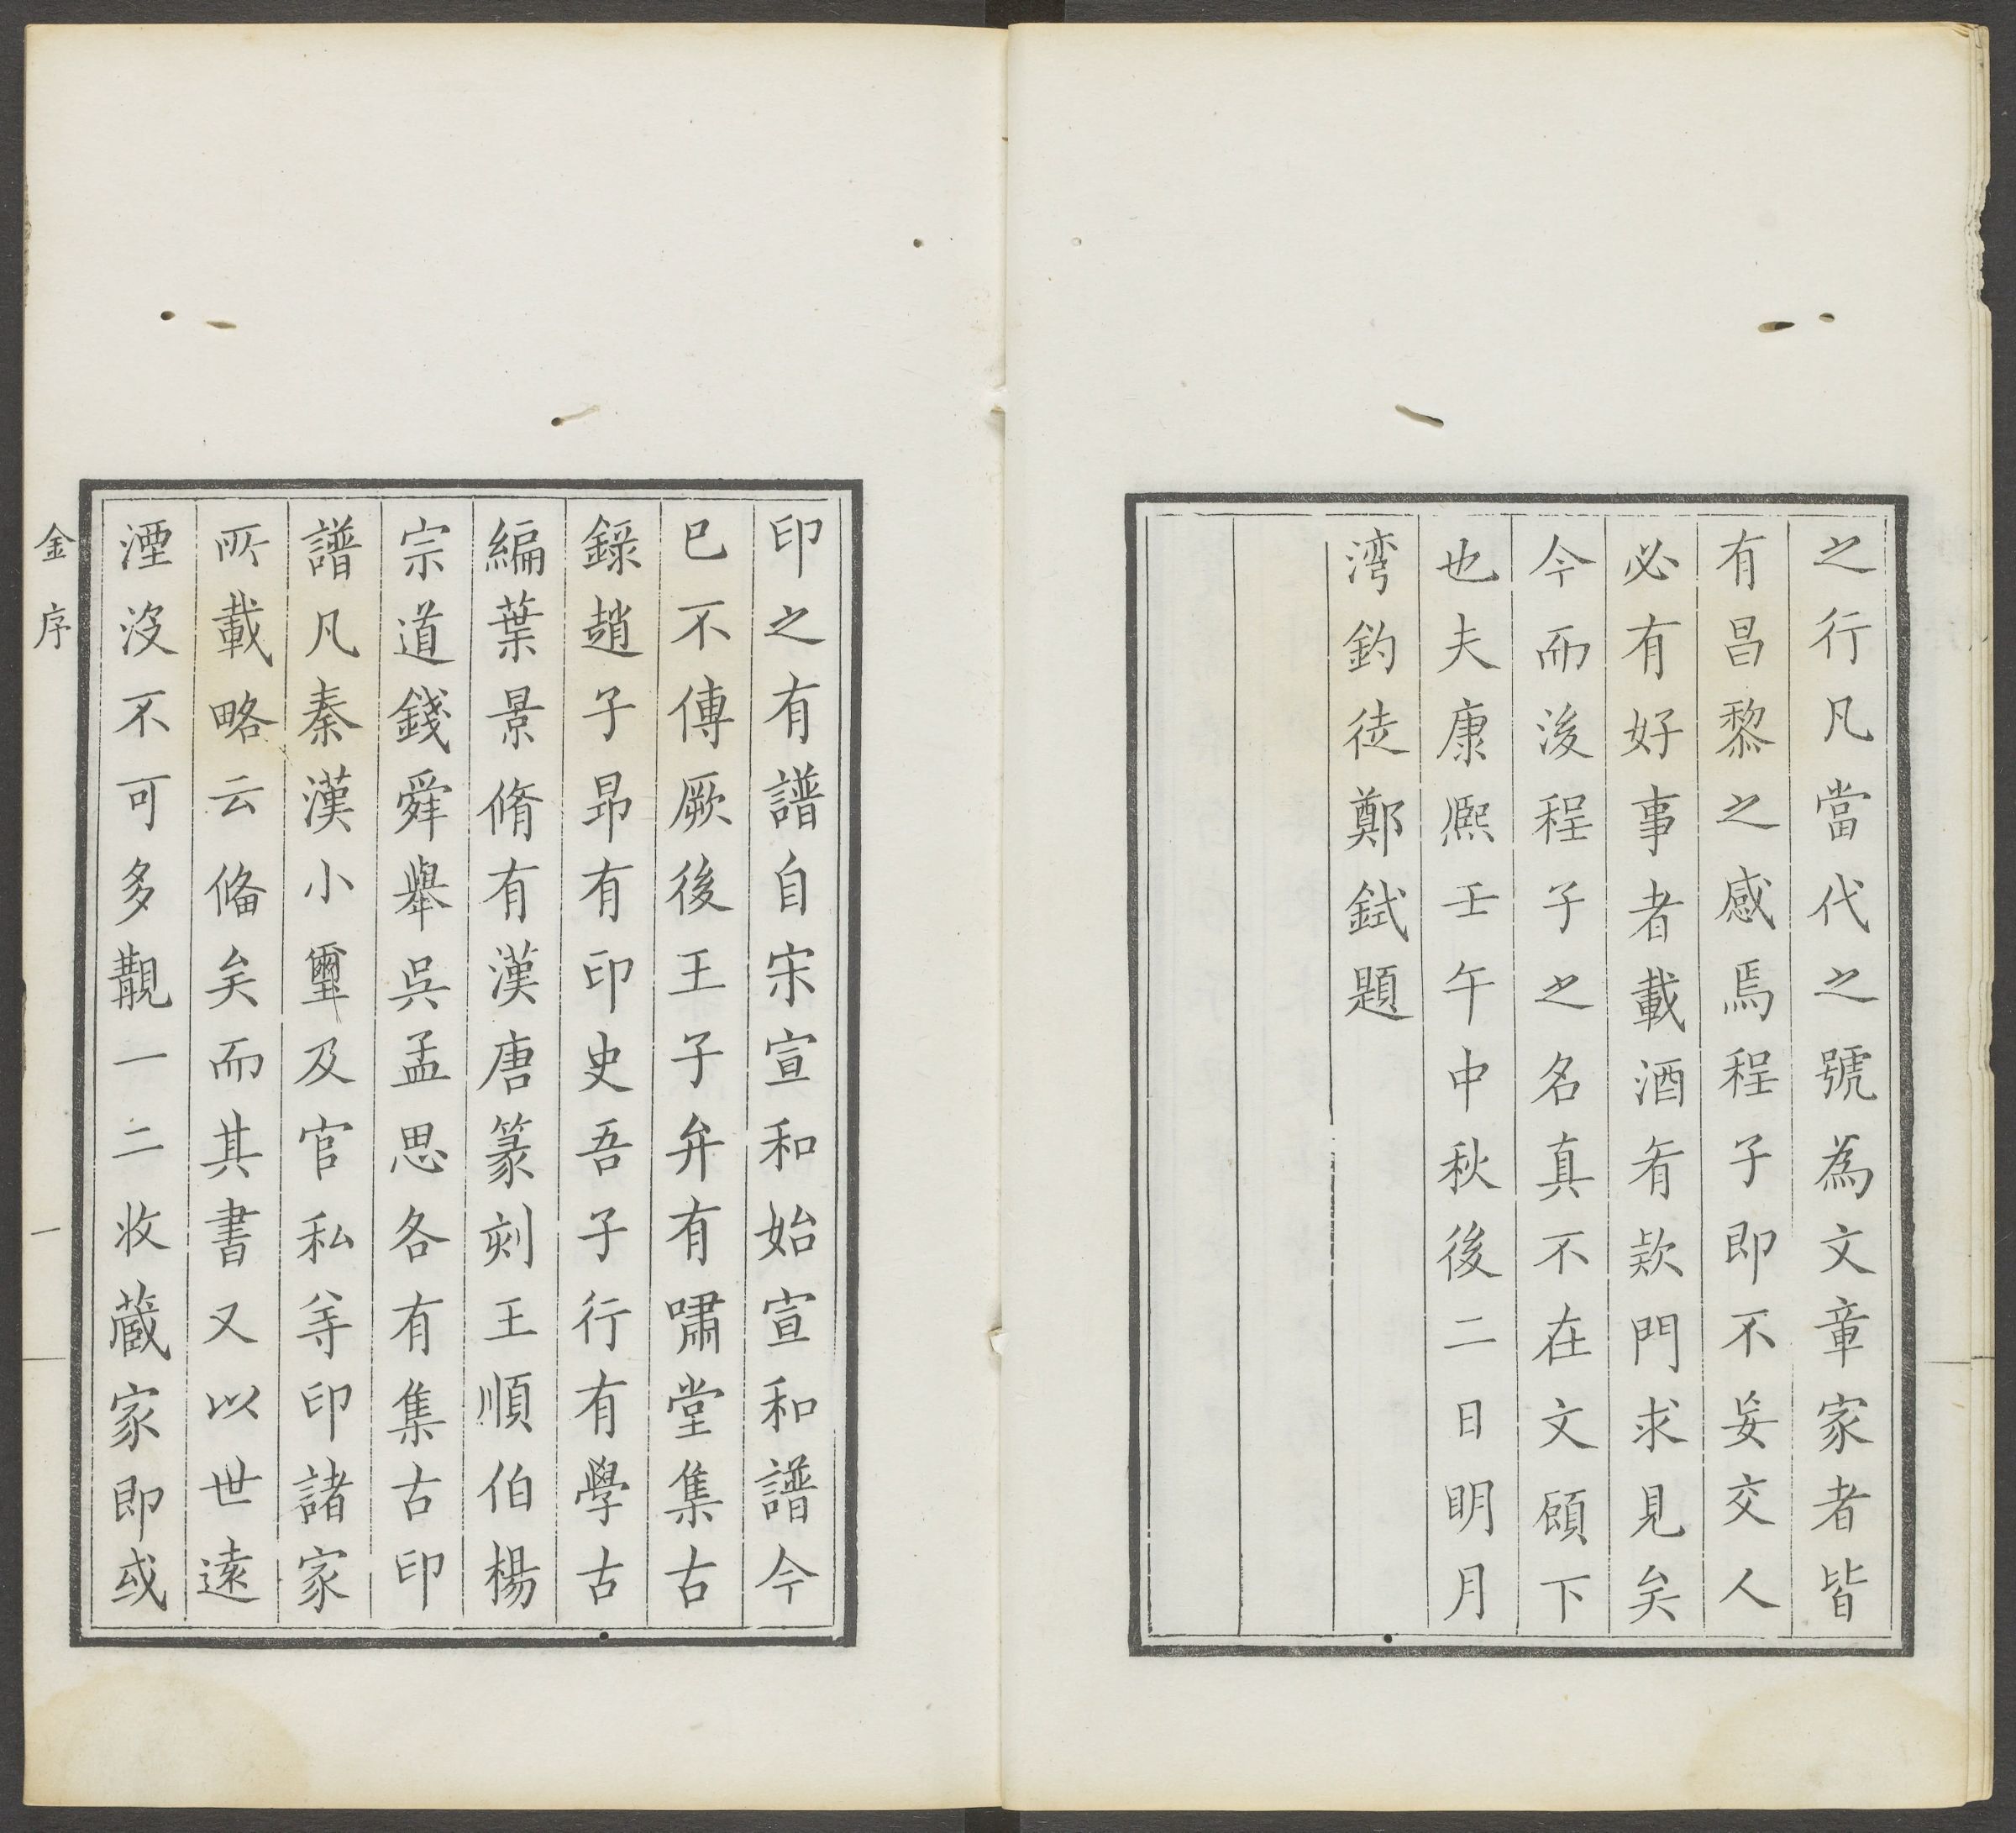 之行凡當代之號為文章家者皆
有昌黎之感焉程子即不妄交人
必有好事者載酒肴款門求見矣
今而後程子之名真不在文顧下
也夫康熙壬午中秋後二日明月
湾釣徒鄭鉽題
印之有譜自宋宣和始宣和譜今
已不傳厥後王子弁有嘯堂集古
録趙子昂有印史吾子行有學古
編葉景脩有漢唐篆刻王順伯楊
宗道錢舜舉吳孟思各有集古印
譜凡秦漢小璽及官私等印諸家
所載略云備矣而其書又以世遠
湮沒不可多覯一二收蔵家即或
金序
一